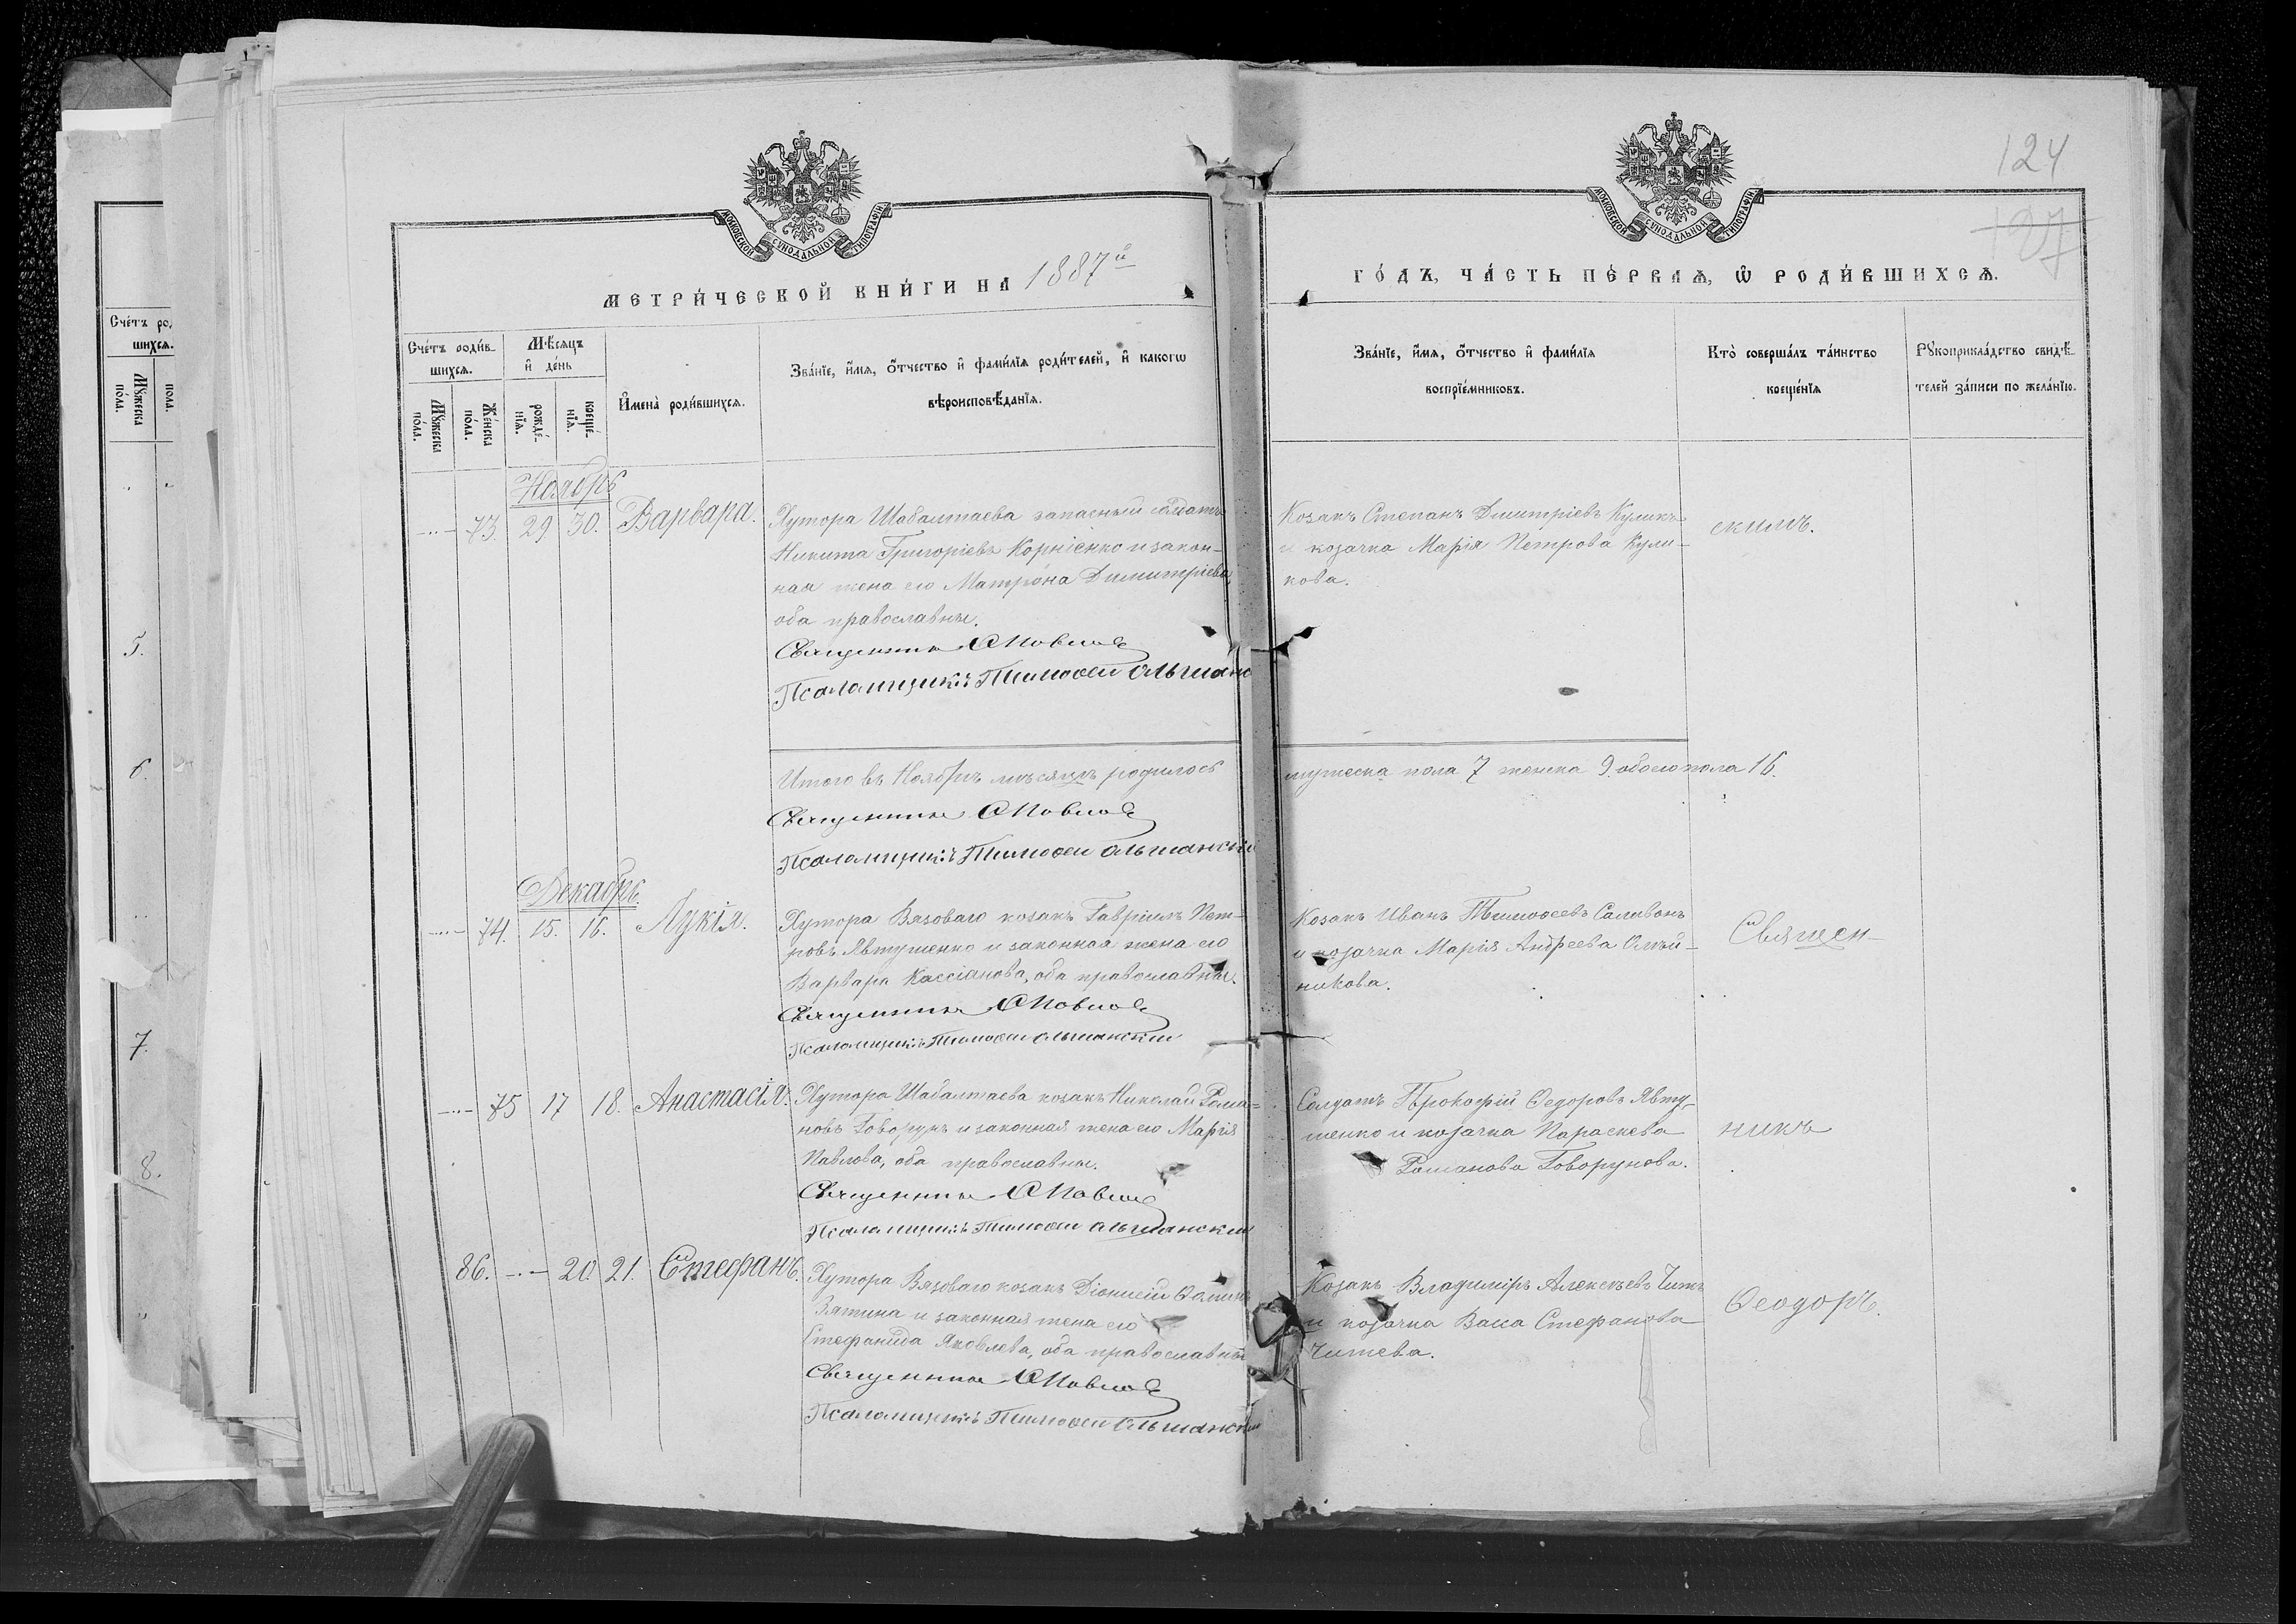 124
127
МОСКОВСКОЙ СѴНОДАЛЬНОЙ ТИПОГРАФІИ
МЕТРИ́ЧЕСКОЙ КНИ́ГИ НА 1887й
Сче́тъ роди́в-
шихсѧ.
Мѣ́сяцъ
и҆ де́нь
Мꙋ́жеска
по́ла.
Же́нска
по́ла.
рожде́-
нїѧ.
креще́-
нїѧ.
И҆мена̀ роди́вшихсѧ.
Зва́нїе, и҆́мѧ, ѻ҆́тчество и҆ фами́лїѧ роди́телей, и҆ какогѡ
вѣроисповѣ́данїѧ.
МОСКОВСКОЙ СѴНОДАЛЬНОЙ ТИПОГРАФІИ
ГО́ДЪ, ЧА́СТЬ ПЕ́РВАѦ, Ѡ҆ РОДИ́ВШИХСѦ.
Зва́нїе, и҆́мѧ, ѻ҆́тчество и҆ фами́лїѧ
воспрїе́мниковъ.
Кто̀ соверша́лъ та́инство
креще́нїѧ
Рꙋкоприкла́дство свидѣ́-
телей за́писи по жела́нїю.
Ноябрь
73. 29. 30. Варвара.
Хутора Шабалтаева запасный солдатъ
Никита Григоріевъ Корніенко и закон-
ная жена его Матрона Димитріева,
оба православны.
Священникъ С Повло
Псаломщикъ Тимофей Ольшанс
Козакъ Степанъ Димитріевъ Куликъ
и козачка Марія Петрова Кули-
кова.
скимъ.
Итого въ Ноябрѣ мѣсяцѣ родилось
мужеска пола 7 женска 9. обоего пола 16.
Священникъ С Повло
Псаломщикъ Тимофей Ольшанскій
Декабрь.
74. 15. 16. Лукія.
Хутора Вязоваго козакъ Гавріилъ Пет-
ровъ Явтушенко и законная жена его
Варвара Кассіанова, оба православны.
Священникъ С Повло
Псаломщикъ Тимофей Ольшанскій
Козакъ Иванъ Тимофеевъ Саливонъ
и козачка Марія Андреева Олѣй-
никова.
Священ-
75 17 18. Анастасія.
Хутора Шабалтаева козакъ Николай Рома-
новъ Говорунъ и законная жена его Марія
Павлова, оба православны.
Священникъ С Повло
Псаломщикъ Тимофей Ольшанскій
Солдатъ Прокофій Федоровъ Явту-
шенко и козачка Параскева
Романова Говорунова.
никъ
86. 20. 21. Стефанъ.
Хутора Вязоваго козакъ Діонисій
Зятина и законная жена его
Стефанида Яковлева, оба православны
Священникъ С Повло
Псаломщикъ Тимофей Ольшанскій
Козакъ Владиміръ Алексѣевъ
и козачка Васса Стефанова
Читева.
Ѳеодоръ.
Сче́тъ ро
шихсѧ.
Мꙋ́жеска
по́ла.
пола.
5.
6.
7.
8.